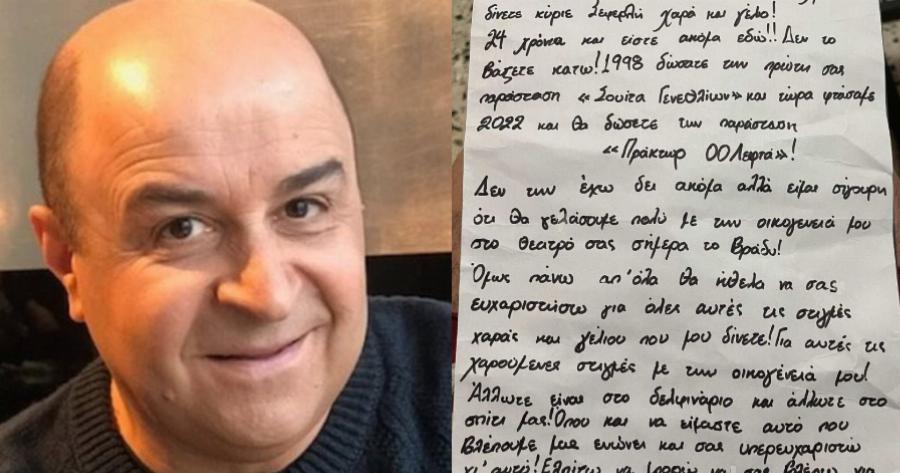 δίνετε κύριε Σεφερλή χαρά και γέλιο!
24 χρόνια και είστε ακόμα εδώ!! Δεν το
βάζετε κάτω! 1998 δώσατε την πρώτη σας
παράσταση «Σουίτα Γενεθλίων» και τώρα φτάσαμε
2022 και θα δώσετε την παράσταση
«Πράκτωρ 00Λεφτά»!
Δεν την έχω δει ακόμα αλλά είμαι σίγουρη
ότι θα γελάσουμε πολύ με την οικογένειά μου
στο θεατρό σας σήμερα το βράδυ!
Όμως πάνω απ' όλα θα ήθελα να σας
ευχαριστήσω για όλες αυτές τις στιγμές
χαράς και γέλιου που μου δίνετε! Για αυτές τις
χαρούμενες στιγμές με την οικογένειά μου!
Άλλωτε είναι στο δελφινάριο και άλλωτε στο
σπίτι μας! Όπου και να είμαστε αυτό που
βλέπουμε μας ενώνει και σας υπερευχαριστώ
γι' αυτό! Ελπίζω να μπορώ να σας βλέπω για